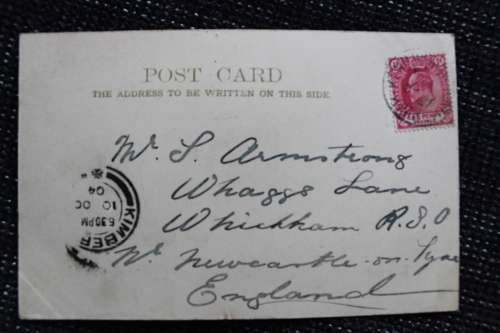 POST CARD
THE ADDRESS TO BE WRITTEN ON THIS SIDE
Mr. S. Armstrong
Whaggs Lane
Whickham R.S.O
Nr. Newcastle-on-Tyne
England
KIMBER
6.30 PM
10 OC
04